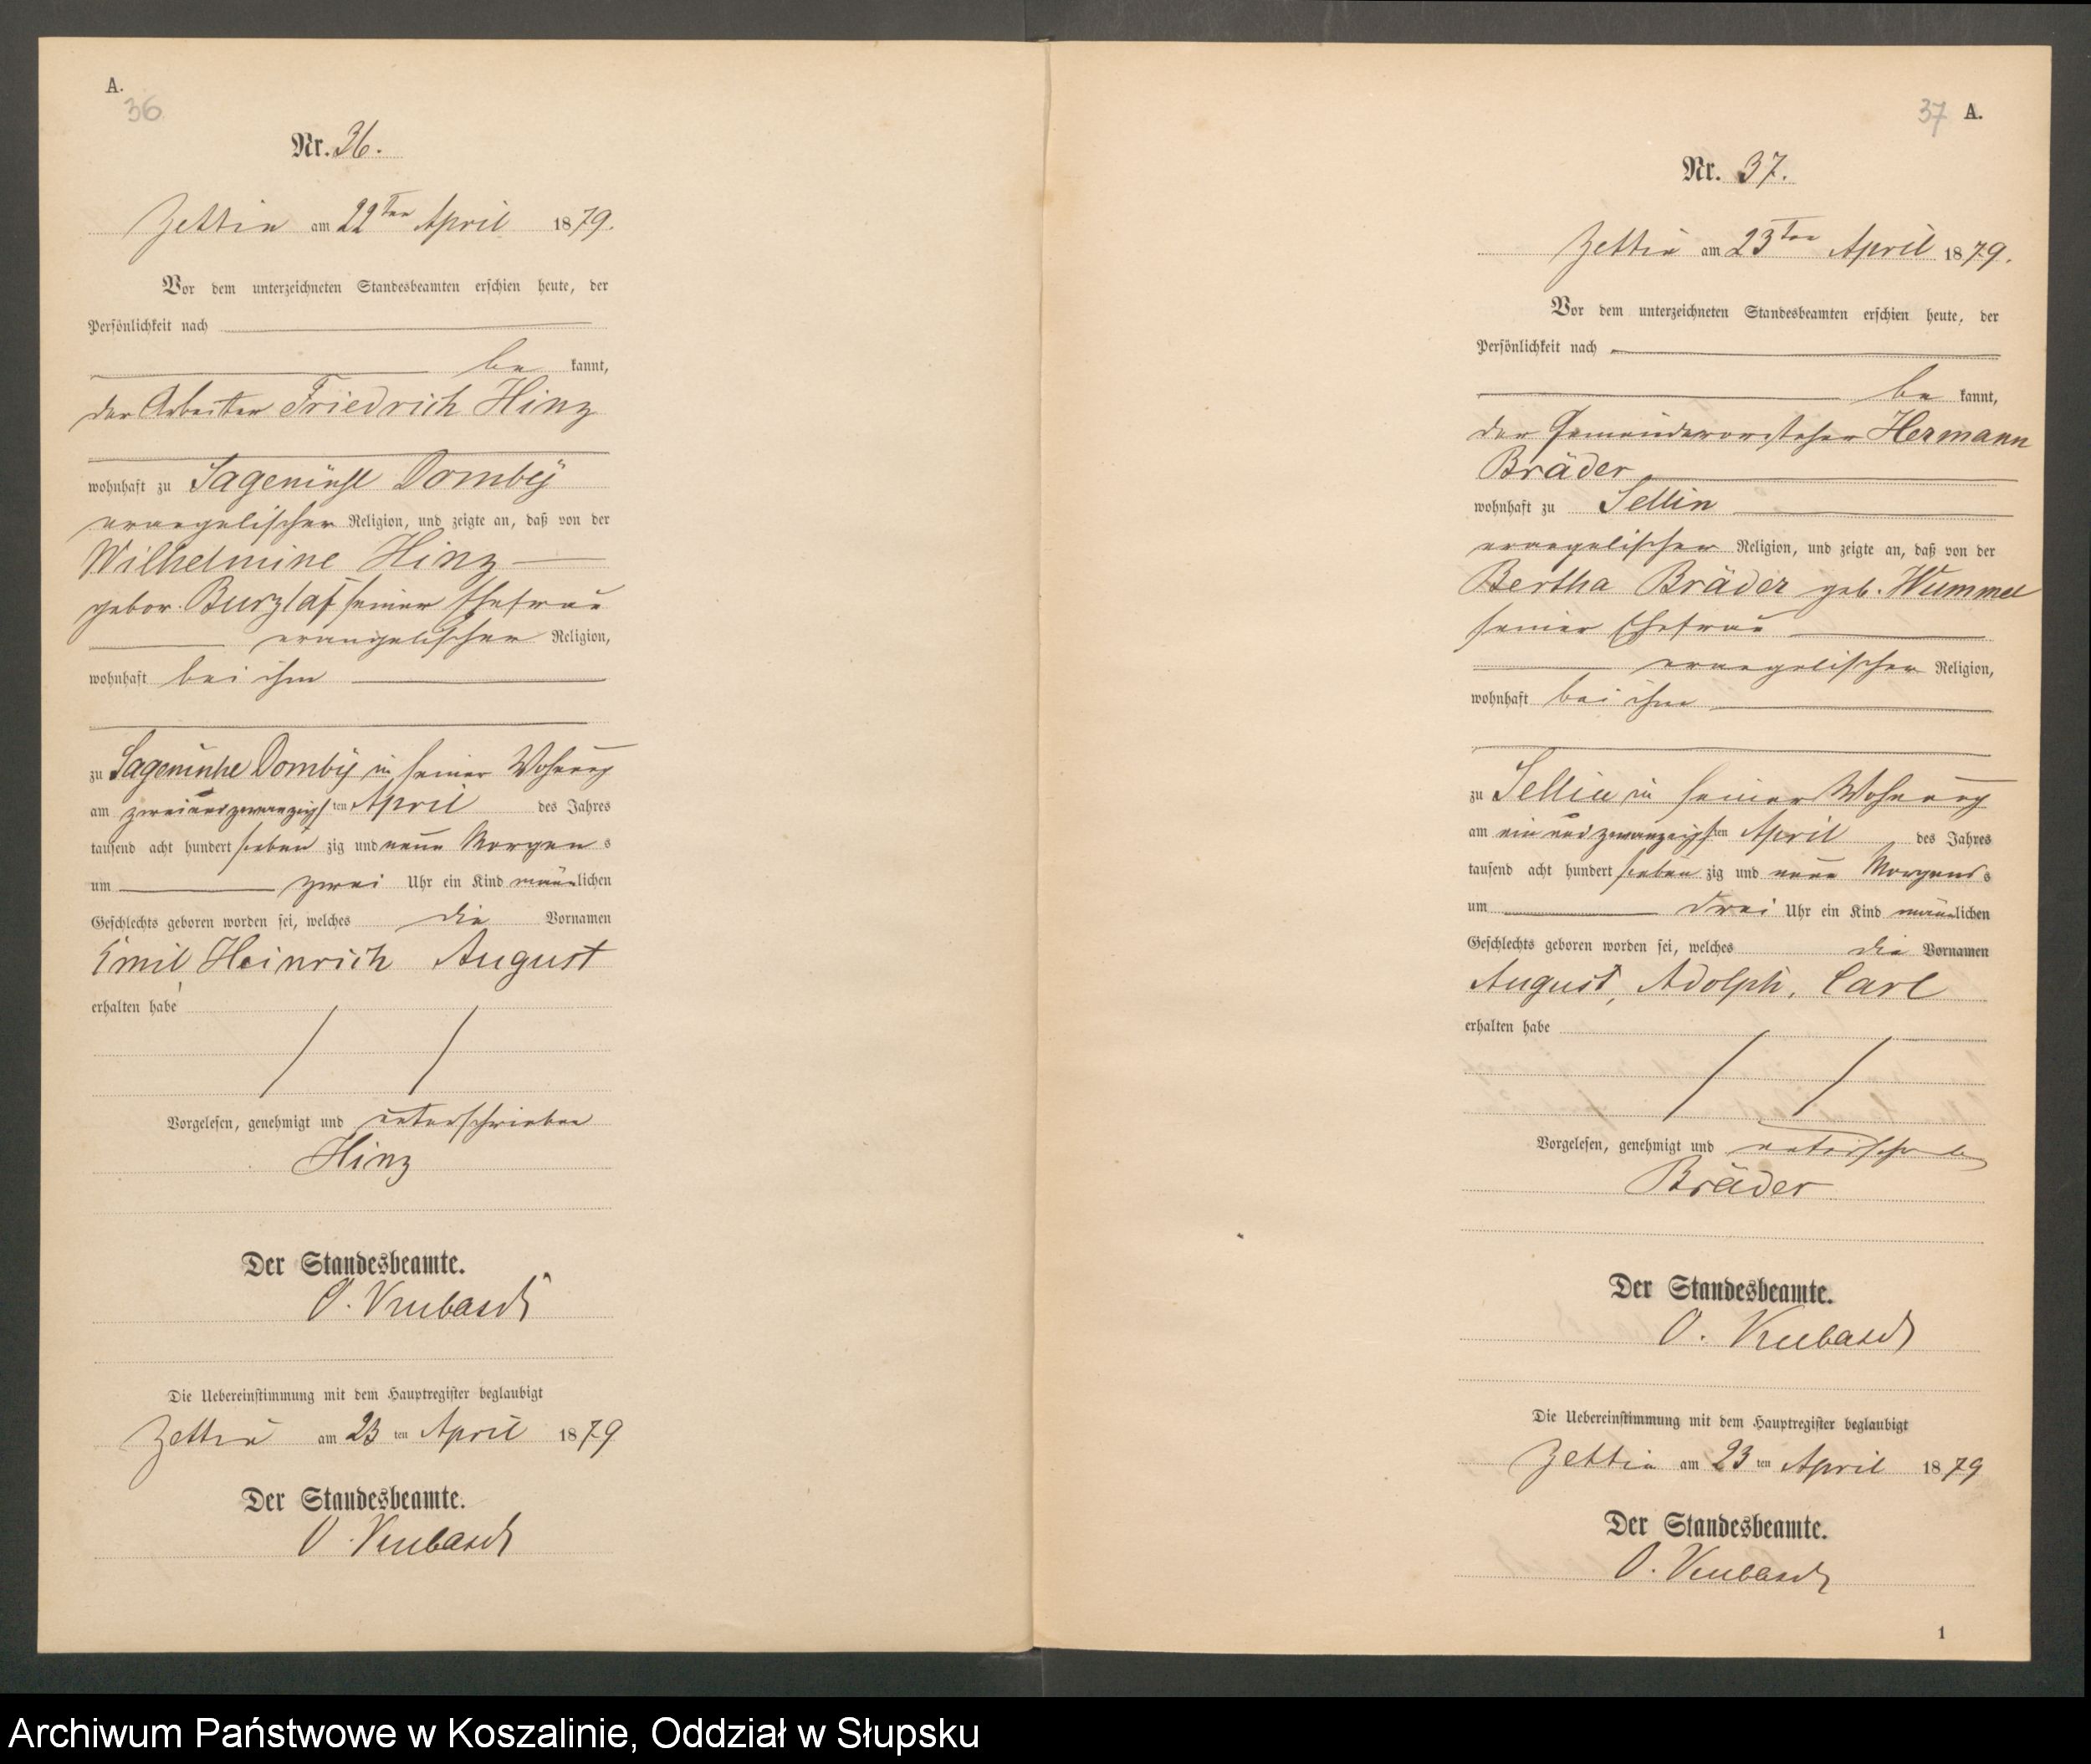 A.
36
Nr. 36.
Zettin am 22ten April 1879.
Vor dem unterzeichneten Standesbeamten erschien heute, der
Persönlichkeit nach
be kannt,
der Arbeiter Friedrich Hinz
wohnhaft zu Sagemühl Dombÿ
evangelischer Religion, und zeigte an, daß von der
Wilhelmine Hinz
gebor. Burzlaf seiner Ehefrau
evangelischer Religion,
wohnhaft bei ihm
zu Dombÿ in seiner Wohnung
am zweiundzwanzigsten April des Jahres
tausend acht hundert sieben zig und neun Morgen s
um zwei Uhr ein Kind männlichen
Geschlechts geboren worden sei, welches die Vornamen
Emil, Heinrich August
erhalten habe
Vorgelesen, genehmigt und unterschrieben
Hinz
Der Standesbeamte.
O.
Die Uebereinstimmung mit dem Hauptregister beglaubigt
Zettin am 23 ten April 1879
Der Standesbeamte.
O.
37 A.
Nr. 37.
Zettin am 23ten April 1879.
Vor dem unterzeichneten Standesbeamten erschien heute, der
Persönlichkeit nach
be kannt,
der Gemeindevorsteher Hermann
Bräder
wohnhaft zu Sellin
evangelischer Religion, und zeigte an, daß von der
Bertha Bräder geb. Wummel
seiner Ehefrau
evangelischer Religion,
wohnhaft bei ihm
zu Sellin in seiner Wohnung
am ein und zwanzigsten April des Jahres
tausend acht hundert sieben zig und neun Morgens s
um drei Uhr ein Kind männlichen
Geschlechts geboren worden sei, welches die Vornamen
August, Adolph, Carl
erhalten habe
Vorgelesen, genehmigt und unterschrieben
Bräder
Der Standesbeamte.
O.
Die Uebereinstimmung mit dem Hauptregister beglaubigt
Zettin am 23 ten April 1879
Der Standesbeamte.
O.
1
Archiwum Państwowe w Koszalinie, Oddział w Słupsku